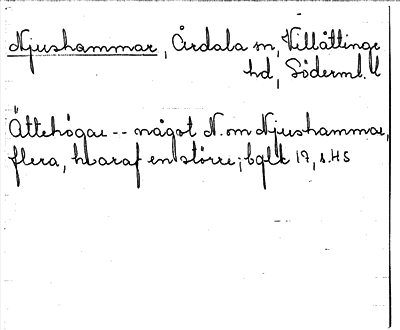 Njushammar, Årdala sn, Villåttinge
hd, Söderml. ll
Ättehögar -- något N. om Njushammar,
flera, hvaraf en större; bgbl 17, s. 45